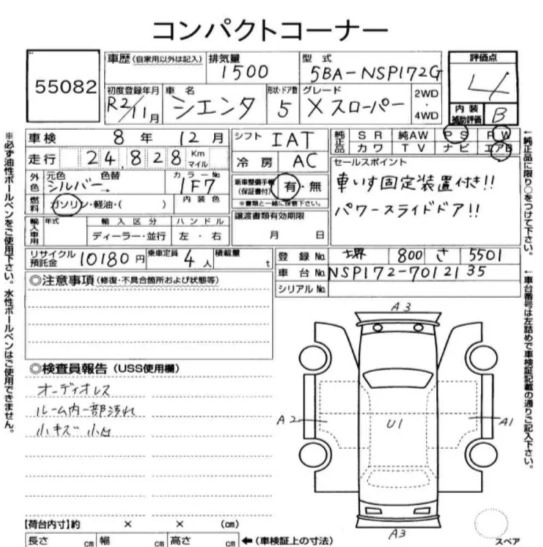 コンパクトコーナー
55082
車歴 (自家用以外は記入) 排気量 1500 型式 5BA-NSP172G 評価点 4
初度登録年月 R2/11月 車名 シエンタ 形状・ドア数 5 グレード Xスローパー 2WD・4WD 内装補助評価 B
車検 8年12月 シフト IAT 純正品 SR 純AW PS PW
カワ TV ナビ エアB
走行 24,828 Km マイル 冷房 AC
外色 元色 シルバー 色替 カラーNo 1F7 新車整備手帳(保証書付) 有・無
セールスポイント
車いす固定装置付き!!
パワースライドドア!!
燃料 ガソリン・軽油・( ) 内装色 ※書類と一緒に提出して下さい。
輸入車用 年式 輸入区分 ハンドル 譲渡書類有効期限
ディーラー・並行 左・右 月 日
リサイクル預託金 10180円 乗車定員 4人 積載量 t
登録No. 堺 800 さ 5501
車台No. NSP172-7012135
シリアルNo.
◎注意事項 (修復・不具合箇所および状態等)
◎検査員報告 (USS使用欄)
オーディオレス
ルーム内一部汚れ
小キズ 小凸
A3
A2
U1
A1
A3
スペア
【荷台内寸】約 × × (cm)
長さ cm 幅 cm 高さ cm ←(車検証上の寸法)
※必ず油性ボールペンをご使用下さい。水性ボールペンはご使用できません。
↑純正品に限り○をつけて下さい。
↑車台番号は左詰めで車検証記載の通りご記入下さい。